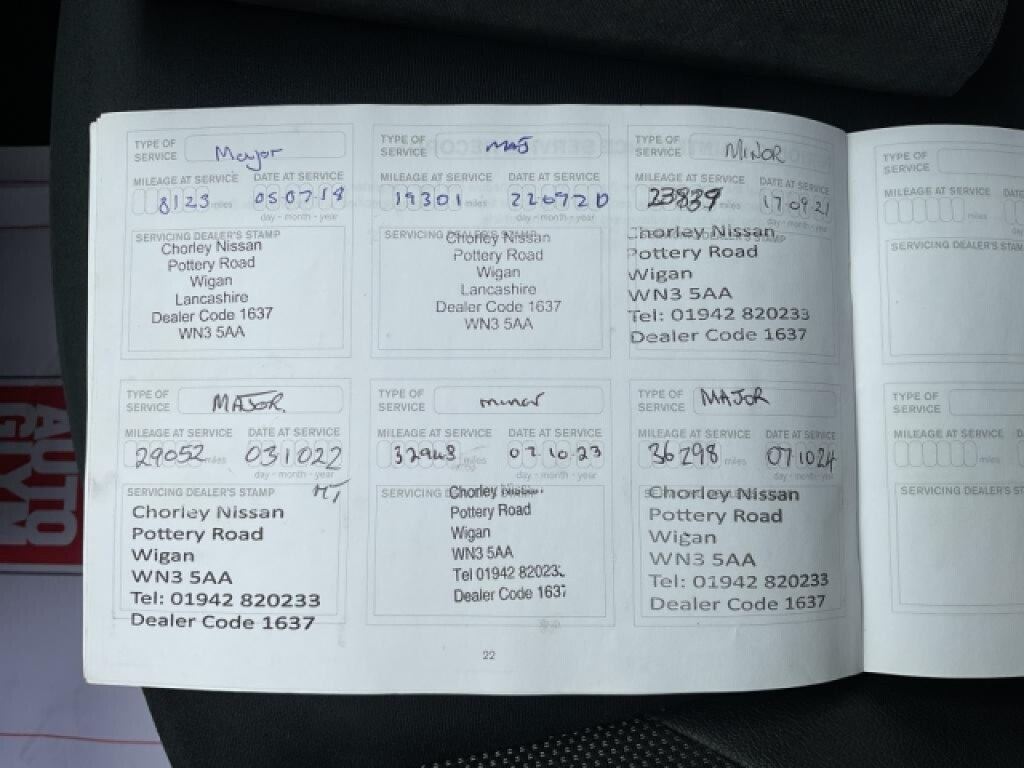 TYPE OF SERVICE Major
MILEAGE AT SERVICE DATE AT SERVICE
8123 miles 050719
day - month - year
SERVICING DEALER'S STAMP
Chorley Nissan
Pottery Road
Wigan
Lancashire
Dealer Code 1637
WN3 5AA
TYPE OF SERVICE MAJ
MILEAGE AT SERVICE DATE AT SERVICE
19301 miles 220920
day - month - year
SERVICING DEALER'S STAMP
Chorley Nissan
Pottery Road
Wigan
Lancashire
Dealer Code 1637
WN3 5AA
TYPE OF SERVICE MINOR
MILEAGE AT SERVICE DATE AT SERVICE
23839 miles 170921
day - month - year
Chorley Nissan
Pottery Road
Wigan
WN3 5AA
Tel: 01942 820233
Dealer Code 1637
TYPE OF SERVICE MAJOR
MILEAGE AT SERVICE DATE AT SERVICE
29052 miles 031022
day - month - year
SERVICING DEALER'S STAMP
Chorley Nissan
Pottery Road
Wigan
WN3 5AA
Tel: 01942 820233
Dealer Code 1637
TYPE OF SERVICE minor
MILEAGE AT SERVICE DATE AT SERVICE
32948 miles 021023
day - month - year
SERVICING
Chorley Nissan
Pottery Road
Wigan
WN3 5AA
Tel 01942 82023
Dealer Code 1637
TYPE OF SERVICE MAJOR
MILEAGE AT SERVICE DATE AT SERVICE
36298 miles 071024
Chorley Nissan
Pottery Road
Wigan
WN3 5AA
Tel: 01942 820233
Dealer Code 1637
22
TYPE OF SERVICE
MILEAGE AT SERVICE
miles
SERVICING DEALER'S STAM
TYPE OF SERVICE
MILEAGE AT SERVICE
miles
SERVICING DEALER'S ST
AUTO
GLYM